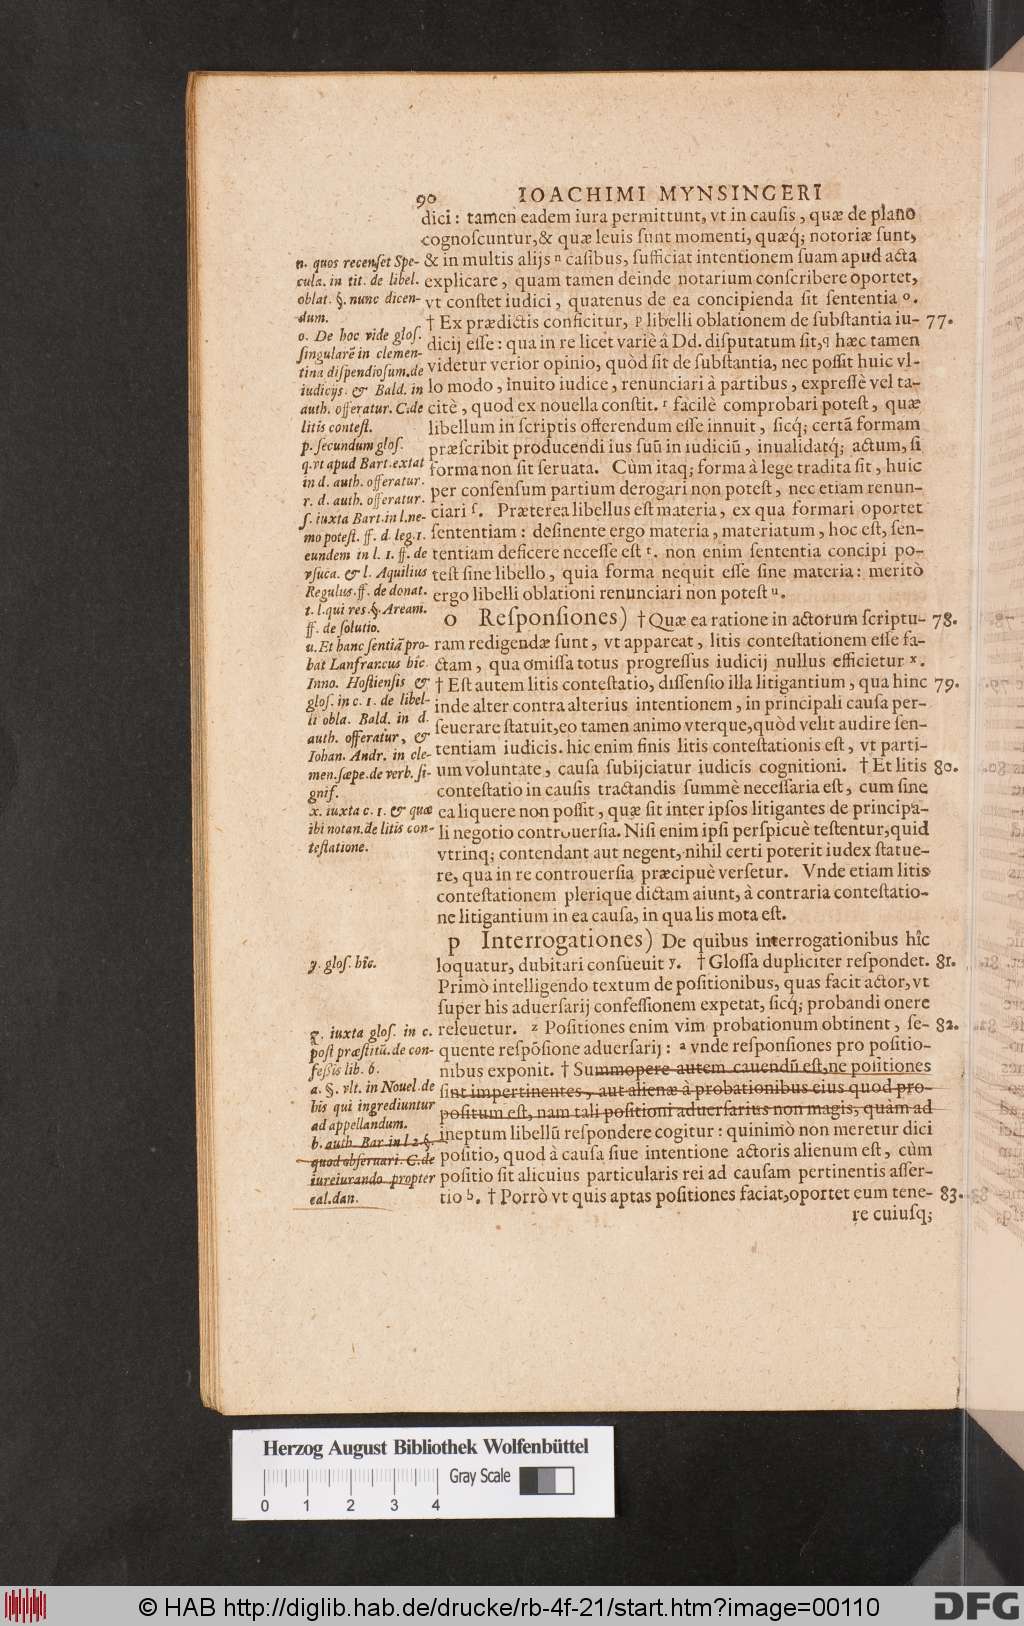 90 IOACHIMI MYNSINGERI
dici: tamen eadem iura permittunt, vt in cauſis, quæ de plano
cognoſcuntur,& quæ leuis ſunt momenti, quæq; notoriæ ſunt,
& in multis alijs ⁿ caſibus, ſufficiat intentionem ſuam apud acta
explicare, quam tamen deinde notarium conſcribere oportet,
vt conſtet iudici, quatenus de ea concipienda ſit ſententia ᵒ.
† Ex prædictis conficitur, ᵖ libelli oblationem de ſubſtantia iu- 77.
dicij eſſe: qua in re licet variè à Dd. diſputatum ſit,q hæc tamen
videtur verior opinio, quòd ſit de ſubſtantia, nec poſſit huic vl-
lo modo, inuito iudice, renunciari à partibus, expreſsè vel ta-
citè, quod ex nouella conſtit. ʳ facilè comprobari poteſt, quæ
libellum in ſcriptis offerendum eſſe innuit, ſicq; certã formam
præſcribit producendi ius ſuũ in iudiciũ, inualidatq; actum, ſi
forma non ſit ſeruata. Cùm itaq; forma à lege tradita ſit, huic
per conſenſum partium derogari non poteſt, nec etiam renun-
ciari ſ. Præterea libellus eſt materia, ex qua formari oportet
ſententiam: deſinente ergo materia, materiatum, hoc eſt, ſen-
tentiam deficere neceſſe eſt ᵗ. non enim ſententia concipi po-
teſt ſine libello, quia forma nequit eſſe ſine materia: meritò
ergo libelli oblationi renunciari non poteſt ᵘ.
o Reſponſiones) † Quæ ea ratione in actorum ſcriptu- 78.
ram redigendæ ſunt, vt appareat, litis conteſtationem eſſe fa-
ctam, qua omiſſa totus progreſſus iudicij nullus efficietur ˣ.
† Eſt autem litis conteſtatio, diſſenſio illa litigantium, qua hinc 79.
inde alter contra alterius intentionem, in principali cauſa per-
ſeuerare ſtatuit,eo tamen animo vterque,quòd velit audire ſen-
tentiam iudicis. hic enim finis litis conteſtationis eſt, vt parti-
um voluntate, cauſa ſubijciatur iudicis cognitioni. † Et litis 80.
conteſtatio in cauſis tractandis ſummè neceſſaria eſt, cum ſine
ea liquere non poſſit, quæ ſit inter ipſos litigantes de principa-
li negotio controuerſia. Niſi enim ipſi perſpicuè teſtentur,quid
vtrinq; contendant aut negent, nihil certi poterit iudex ſtatue-
re, qua in re controuerſia præcipuè verſetur. Vnde etiam litis
conteſtationem plerique dictam aiunt, à contraria conteſtatio-
ne litigantium in ea cauſa, in qua lis mota eſt.
p Interrogationes) De quibus interrogationibus hîc
loquatur, dubitari conſueuit ʸ. † Gloſſa dupliciter reſpondet. 81.
Primò intelligendo textum de poſitionibus, quas facit actor,vt
ſuper his aduerſarij confeſſionem expetat, ſicq; probandi onere
releuetur. ᶻ Poſitiones enim vim probationum obtinent, ſe- 82.
quente reſpõſione aduerſarij: ᵃ vnde reſponſiones pro poſitio-
nibus exponit. † Summopere autem cauendũ eſt,ne poſitiones
ſint impertinentes, aut alienæ à probationibus eius quod pro-
poſitum eſt, nam tali poſitioni aduerſarius non magis, quàm ad
ineptum libellũ reſpondere cogitur: quinimò non meretur dici
poſitio, quod à cauſa ſiue intentione actoris alienum eſt, cùm
poſitio ſit alicuius particularis rei ad cauſam pertinentis aſſer-
tio ᵇ. † Porrò vt quis aptas poſitiones faciat,oportet eum tene- 83.
re cuiuſq;
n. quos recenſet Spe-
cula. in tit. de libel.
oblat. §. nunc dicen-
dum.
o. De hoc vide gloſ.
ſingularẽ in clemen-
tina diſpendioſum.de
iudicijs. & Bald. in
auth. offeratur. C.de
litis conteſt.
p. ſecundum gloſ.
q.vt apud Bart.extat
in d. auth. offeratur.
r. d. auth. offeratur.
ſ. iuxta Bart.in l.ne-
mo poteſt. ff. d leg.1.
eundem in l. 1. ff. de
vſuca. & l. Aquilius
Regulus.ff. de donat.
t. l.qui res.§.Aream.
ff. de ſolutio.
u.Et hanc ſentiã pro-
bat Lanfrancus hîc.
Inno. Hoſtienſis &
gloſ. in c. 1. de libel-
li obla. Bald. in d.
auth. offeratur, &
Iohan. Andr. in cle-
men.ſæpe.de verb. ſi-
gnif.
x. iuxta c. 1. & quæ
ibi notan.de litis con-
teſtatione.
y. gloſ. hîc.
z. iuxta gloſ. in c.
poſt præſtitũ.de con-
feßis lib. 6.
a. §. vlt. in Nouel.de
his qui ingrediuntur
ad appellandum.
b. auth. Bar.in l 2.§.
quod obſeruari. C.de
iureiurando propter
cal.dan.
Herzog August Bibliothek Wolfenbüttel
Gray Scale
0 1 2 3 4
© HAB http://diglib.hab.de/drucke/rb-4f-21/start.htm?image=00110
DFG